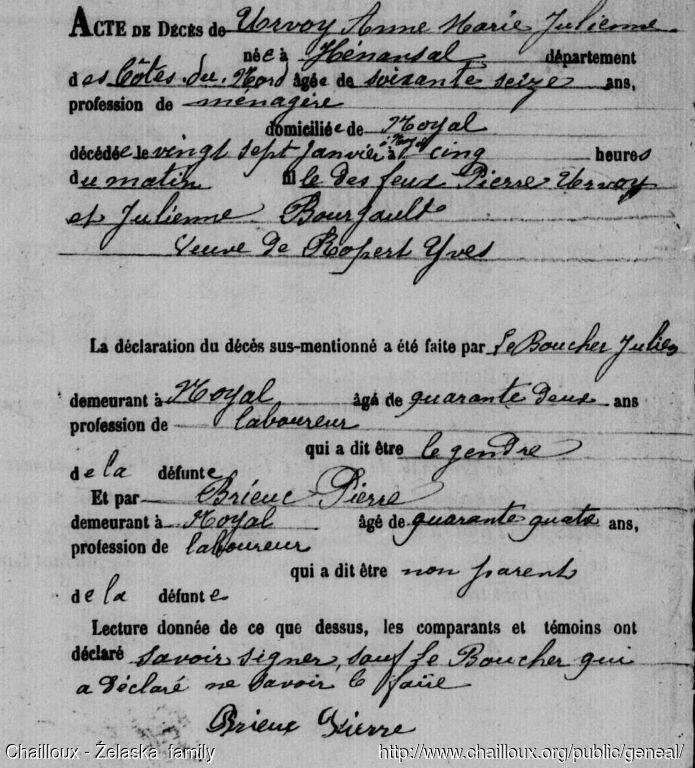 ACTE DE DÉCÈS de Urvoy Anne Marie Julienne
née à Hénansal département
des Côtes du Nord âgée de soixante seize ans,
profession de ménagère
domiciliée de Noyal
décédée le vingt sept janvier à Noyal à cinq heures
du matin fille des feux Pierre Urvoy
et Julienne Bourgault
Veuve de Ropert Yves
La déclaration du décès sus-mentionné a été faite par Le Boucher Julien
demeurant à Noyal âgé de quarante deux ans
profession de laboureur
qui a dit être le gendre
de la défunte
Et par Brieuc Pierre
demeurant à Noyal âgé de quarante quatre ans,
profession de laboureur
qui a dit être non parent
de la défunte
Lecture donnée de ce que dessus, les comparants et témoins ont
déclaré savoir signer, sauf Le Boucher qui
a déclaré ne savoir le faire
Brieux Pierre
Chailloux - Żelaska family http://www.chailloux.org/public/geneal/